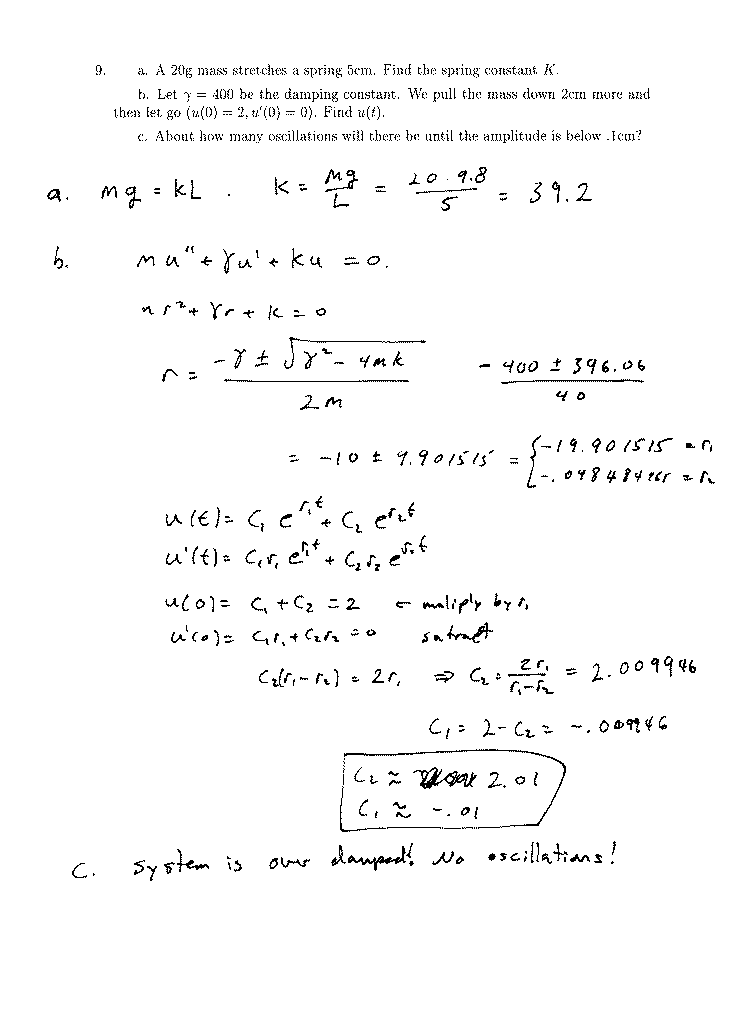 9. a. A 20g mass stretches a spring 5cm. Find the spring constant K.
b. Let γ = 400 be the damping constant. We pull the mass down 2cm more and
then let go (u(0) = 2, u'(0) = 0). Find u(t).
c. About how many oscillations will there be until the amplitude is below .1cm?
a. mg = kL . K = Mg/L = 20 · 9.8/5 = 39.2
b. m u" + γu' + ku = 0.
m r² + γr + k = 0
r = (-γ ± √(γ² - 4mk))/2m (-400 ± 396.06)/40
= -10 ± 9.901515 = { -19.901515 = r₁
-.098484865 = r₂
u(t) = C₁ e^{r₁t} + C₂ e^{r₂t}
u'(t) = C₁r₁ e^{r₁t} + C₂r₂ e^{r₂t}
u(0) = C₁ + C₂ = 2 ← muliply by r₁
u'(0) = C₁r₁ + C₂r₂ = 0 subtract
C₂(r₁ - r₂) = 2r₁ ⇒ C₂ = 2r₁/(r₁-r₂) = 2.009946
C₁ = 2 - C₂ = -.009946
C₂ ≈ 2.01
C₁ ≈ -.01
C. System is over damped! No oscillations!